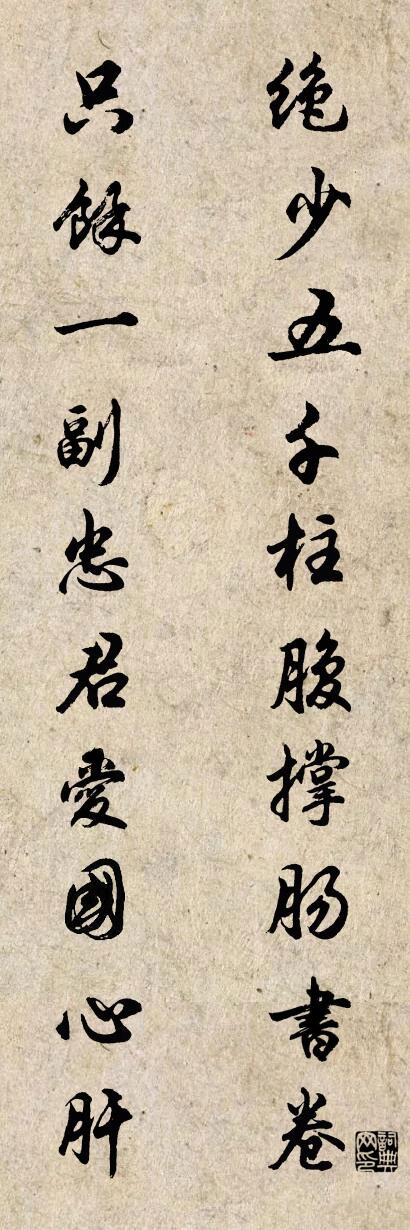 绝少五千柱腹撑肠书卷
只餘一副忠君愛國心肝
詞典网印